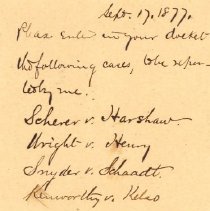 Sept. 17, 1877.
Please enter in your docket
the following cases, to be repor-
ted by me:
Scherer v. Harshaw.
Wright v. Henry
Snyder v. Schaadt.
Kenworthy v. Kelso